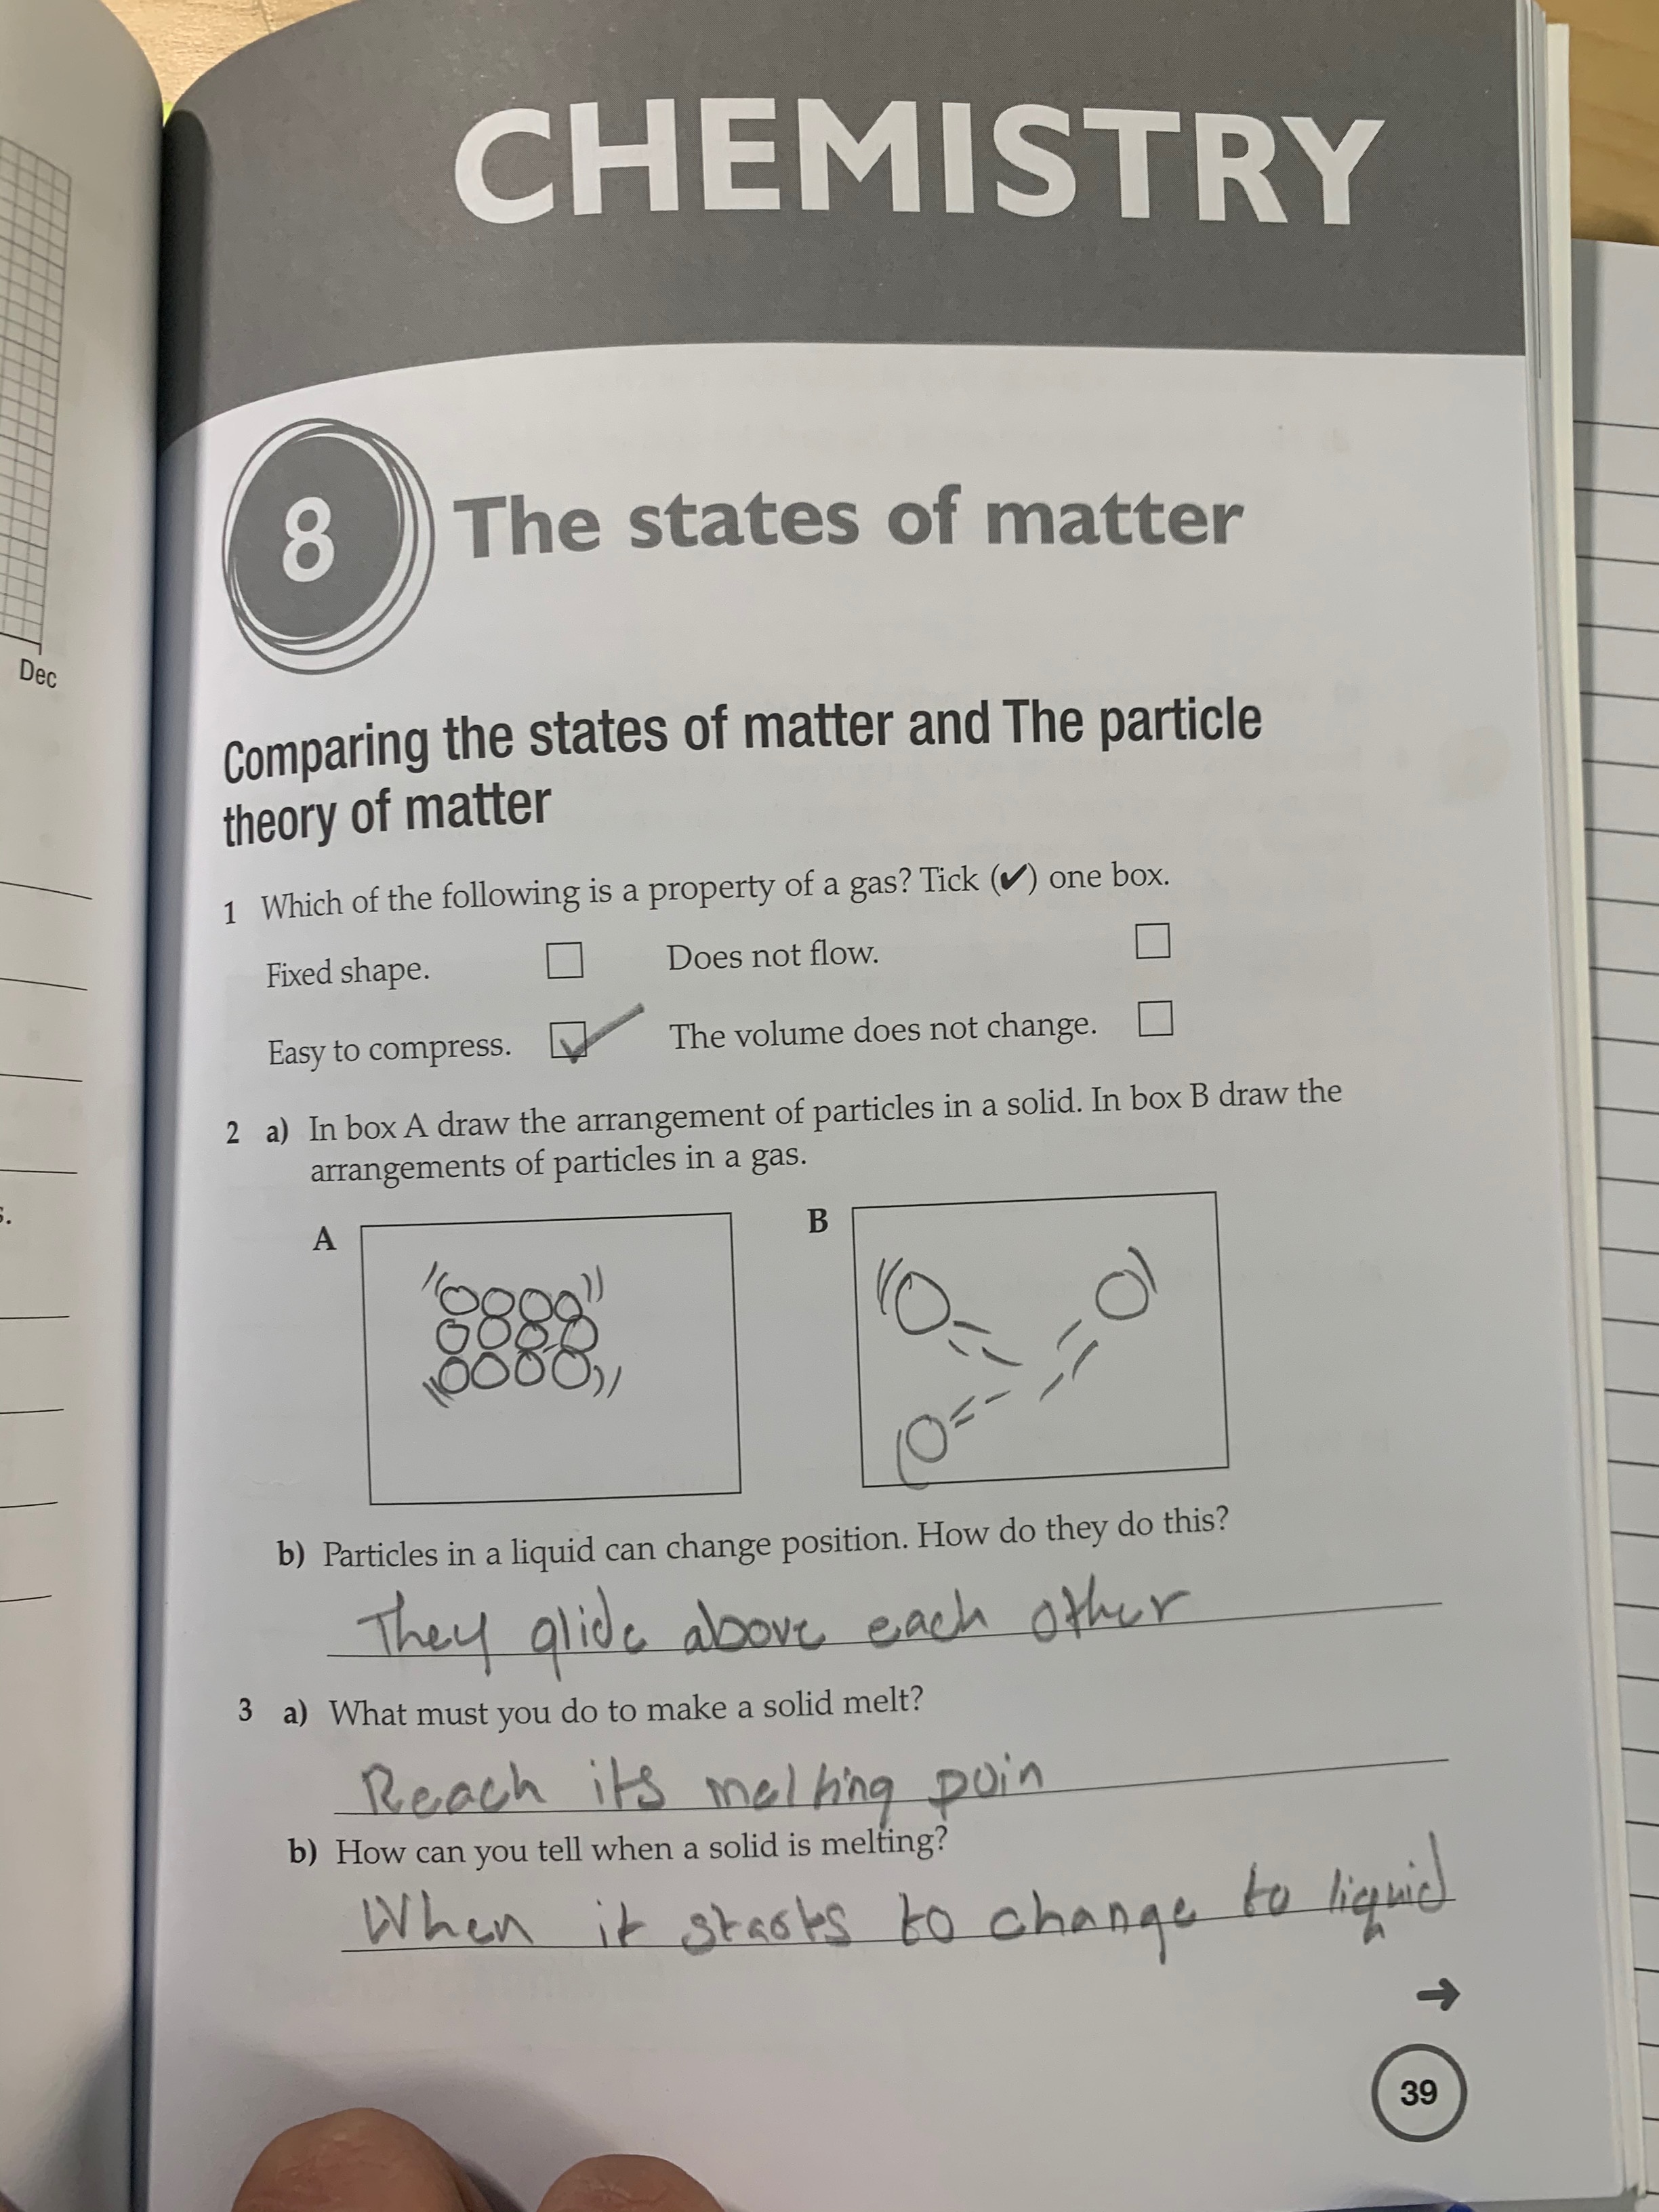 Dec
s.
CHEMISTRY
8 The states of matter
Comparing the states of matter and The particle
theory of matter
1 Which of the following is a property of a gas? Tick (✔) one box.
Fixed shape. Does not flow.
Easy to compress. The volume does not change.
2 a) In box A draw the arrangement of particles in a solid. In box B draw the
arrangements of particles in a gas.
A B
b) Particles in a liquid can change position. How do they do this?
They glide above each other
3 a) What must you do to make a solid melt?
Reach its melting poin
b) How can you tell when a solid is melting?
When it starts to change to liquid
→
39